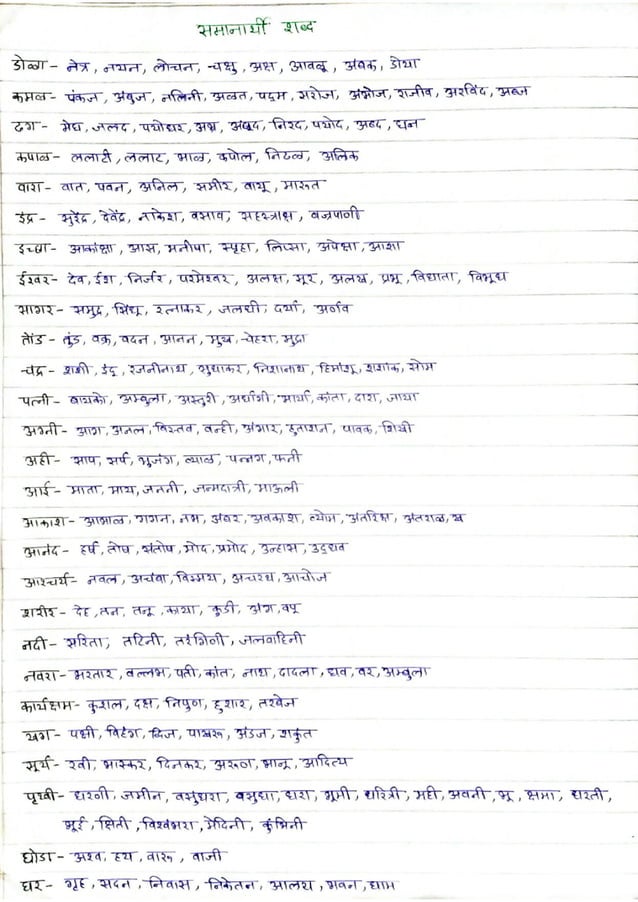 समानार्थी शब्द
डोळा - नेत्र, नयन, लोचन, चक्षु, अक्ष, आवळू, अंबक, डोया
कमळ - पंकज, अंबुज, नलिनी, अळत, पद्म, सरोज, अंभोज, राजीव, अरविंद, अब्ज
ढग - मेघ, जलद, पयोधर, अभ्र, अंबुद, निरद, पयोद, अब्द, घन
कपाळ - ललाटी, ललाट, भाळ, कपोल, निढळ, अलिक
वारा - वात, पवन, अनिल, समीर, वायू, मारुत
इंद्र - सुरेंद्र, देवेंद्र, नाकेश, वसाव, सहस्त्राक्ष, वज्रपाणी
इच्छा - आकांक्षा, आस, मनीषा, स्पृहा, लिप्सा, अपेक्षा, आशा
ईश्वर - देव, ईश, निर्जर, परमेश्वर, अलक्ष, सूर, अलख, प्रभू, विधाता, विबूध
सागर - समुद्र, सिंधू, रत्नाकर, जलधी, दर्या, अर्णव
तोंड - तुंड, वक्र, वदन, आनन, मुख, चेहरा, मुद्रा
चंद्र - शशी, इंदू, रजनीनाथ, सुधाकर, निशानाथ, हिमांशू, शशांक, सोम
पत्नी - बायको, अम्बुला, अस्तुरी, अर्धांगी, भार्या, कांता, दारा, जाया
अग्नी - आग, अनल, विस्तव, वन्ही, अंगार, हुताशन, पावक, शिखी
अही - साप, सर्प, भुजंग, व्याळ, पन्नग, फनी
आई - माता, माय, जननी, जन्मदात्री, माऊली
आकाश - आभाळ, गगन, नभ, अंबर, अवकाश, व्योम, अंतरिक्ष, अंतराळ, ख
आनंद - हर्ष, तोष, संतोष, मोद, प्रमोद, उल्हास, उद्धव
आश्चर्य - नवल, अचंबा, विस्मय, अचरथ, आचोज
शरीर - देह, तन, तनू, काया, कुडी, अंग, वपू
नदी - सरिता, तटिनी, तरंगिणी, जलवाहिनी
नवरा - भरतार, वल्लभ, पती, कांत, नाथ, दादला, धव, वर, अम्बुला
कार्यक्षम - कुशल, दक्ष, निपुण, हुशार, तरबेज
खग - पक्षी, विहंग, द्विज, पाखरू, अंडज, शकुंत
सूर्य - रवी, भास्कर, दिनकर, अरुण, भानू, आदित्य
पृथ्वी - धरणी, जमीन, वसुंधरा, वसुधा, धरा, भूमी, धरित्री, मही, अवनी, भू, क्षमा, धरती,
भूई, क्षिती, विश्वंभरा, मेदिनी, कुंभिनी
घोडा - अश्व, हय, वारू, वाजी
घर - गृह, सदन, निवास, निकेतन, आलय, भवन, धाम